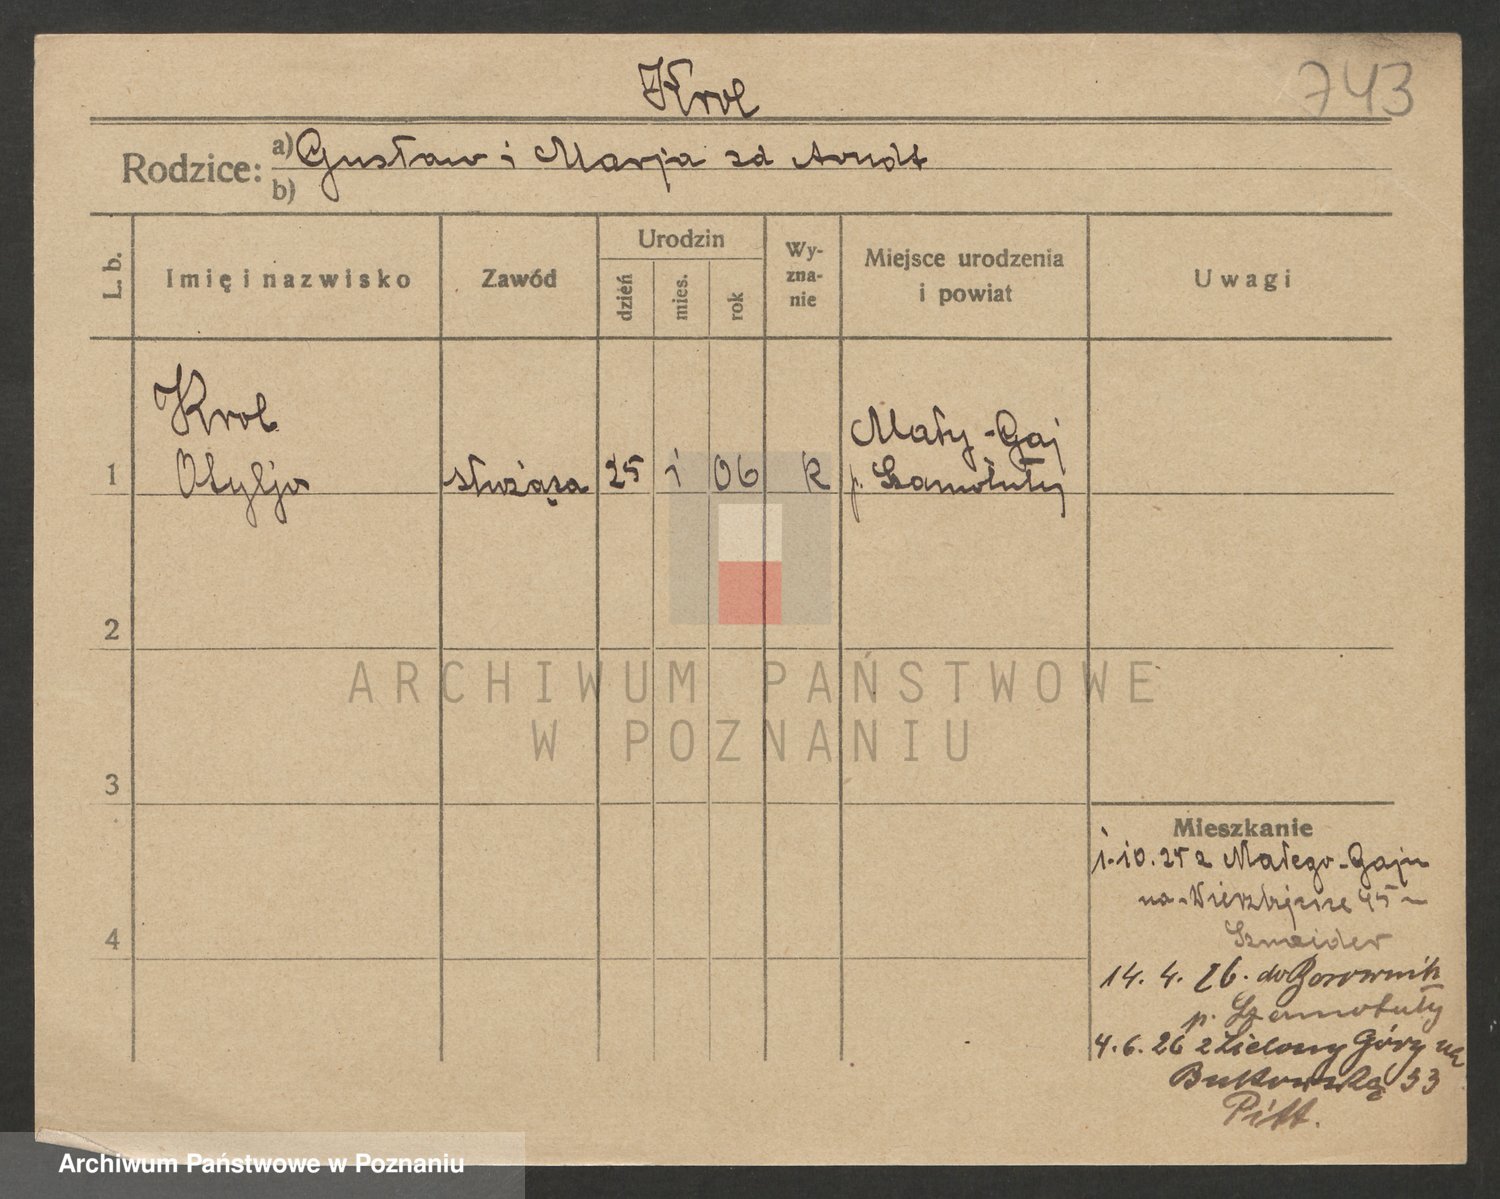 Krol
743
Rodzice: a) Gustaw i Marja zd Arndt
b)
L. b.
Imię i nazwisko
Zawód
Urodzin
dzień
mies.
rok
Wy-
zna-
nie
Miejsce urodzenia
i powiat
Uwagi
Krol
1 Otylja służąca 25 i 06 k Mały-Gaj
p. Szamotuły
2
3
4
Mieszkanie
1.10.25 z Małego-Gaju
na Wierzbięcice 45
Sznaider
14. 4. 26. do Borownik
p. Szamotuły
4.6.26 z Zielony Góry na
Bukowską 33
Pitt.
ARCHIWUM PAŃSTWOWE
W POZNANIU
Archiwum Państwowe w Poznaniu